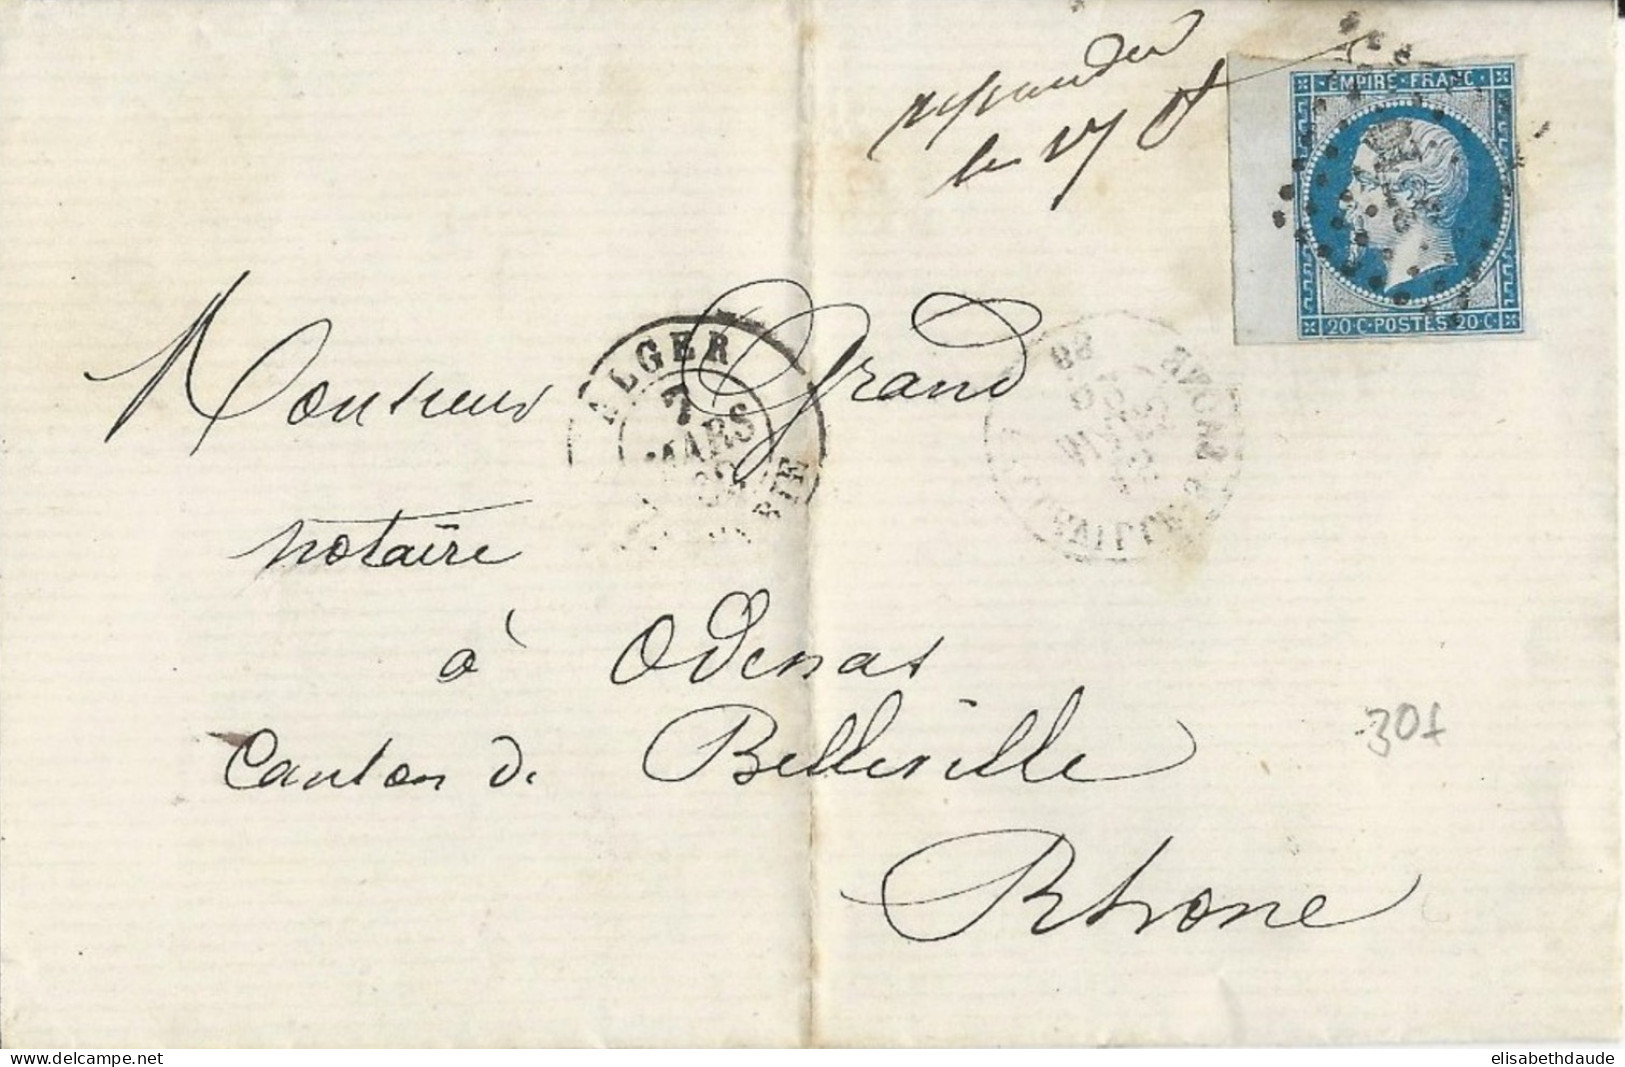 repondu
le 17
EMPIRE FRANC
20 C POSTES 20 C
ALGER
7
MARS
Monsieur Grand
notaire
à Odenas
Canton de Belleville
Rhone
30f
elisabethdaude